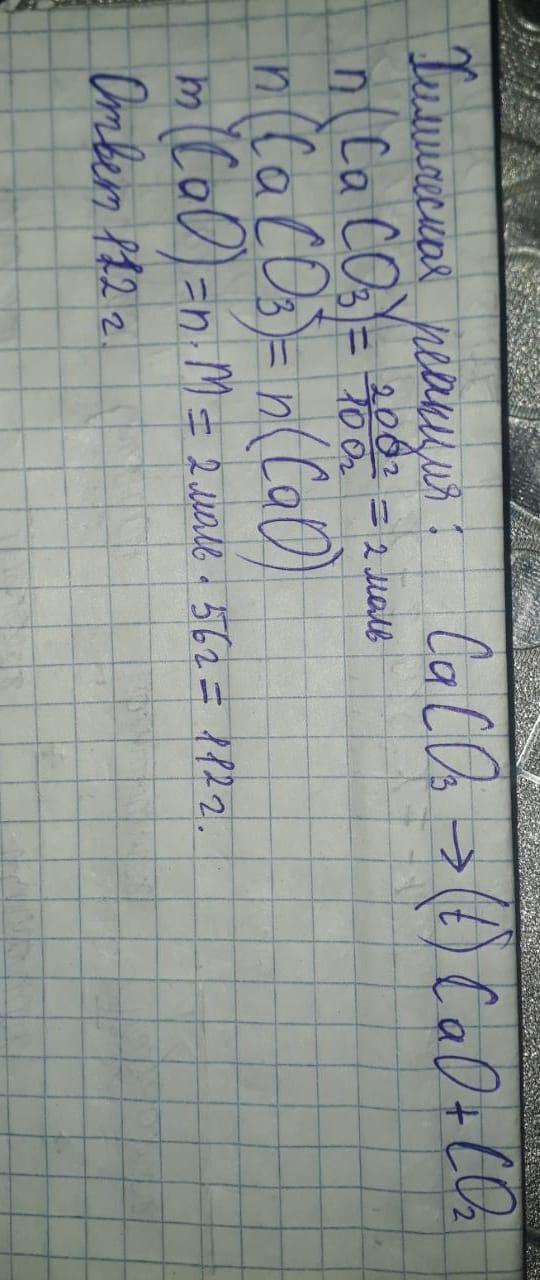 Химическая реакция: CaCO₃ → (t) CaO + CO₂
n(CaCO₃) = 200г/100г = 2 моль
n(CaCO₃) = n(CaO)
m(CaO) = n · M = 2 моль · 56г = 112г.
Ответ 112г.